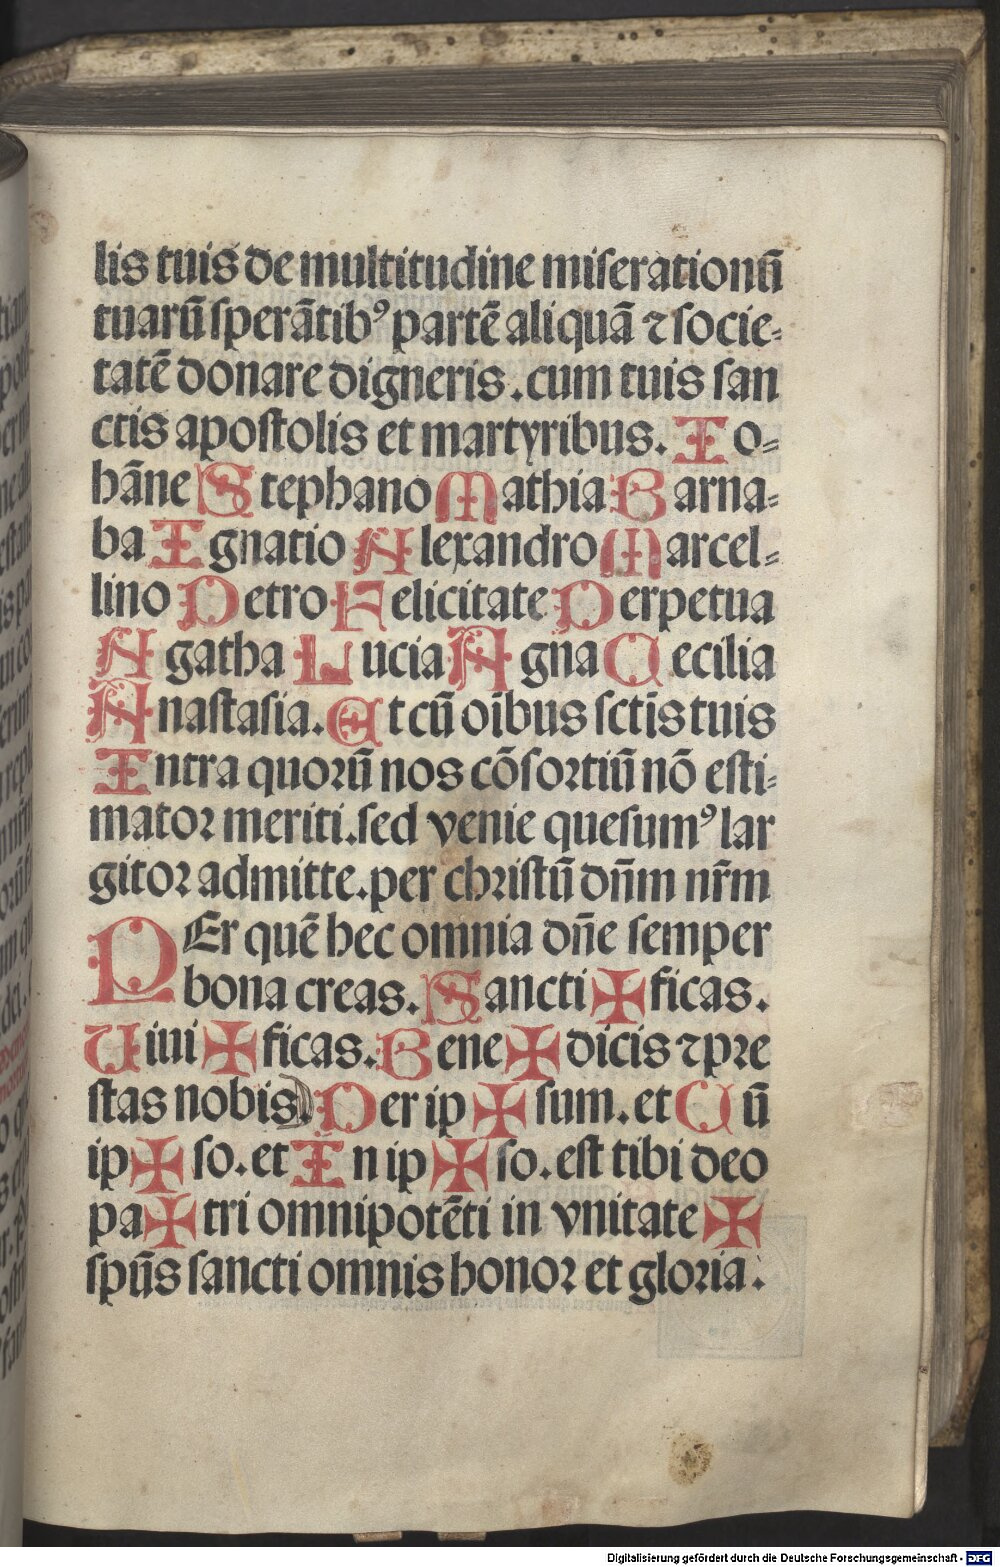 lis tuis de multitudine miserationū
tuarū sperātibꝰ partē aliquā ⁊ socie⸗
tatē donare digneris .cum tuis san
ctis apostolis et martyribus. Io⸗
hāne Stephano Mathia Barna⸗
ba Ignatio Alexandro Marcel⸗
lino Petro Felicitate Perpetua
Agatha Lucia Agna Cecilia
Anastasia. Et cū oībus sctīs tuis
Intra quorū nos cōsortiū nō esti⸗
mator meriti.sed venie quesumꝰ lar
gitor admitte.per christū dn̄m nr̄m
PEr quē hec omnia dn̄e semper
bona creas. Sancti ✠ ficas.
Uiui ✠ ficas. Bene ✠ dicis ⁊pre
stas nobis. Per ip ✠ sum. et Cū
ip ✠ so. et In ip ✠ so. est tibi deo
pa ✠ tri omnipotēti in vnitate ✠
spūs sancti omnis honor et gloria.
Digitalisierung gefördert durch die Deutsche Forschungsgemeinschaft - DFG